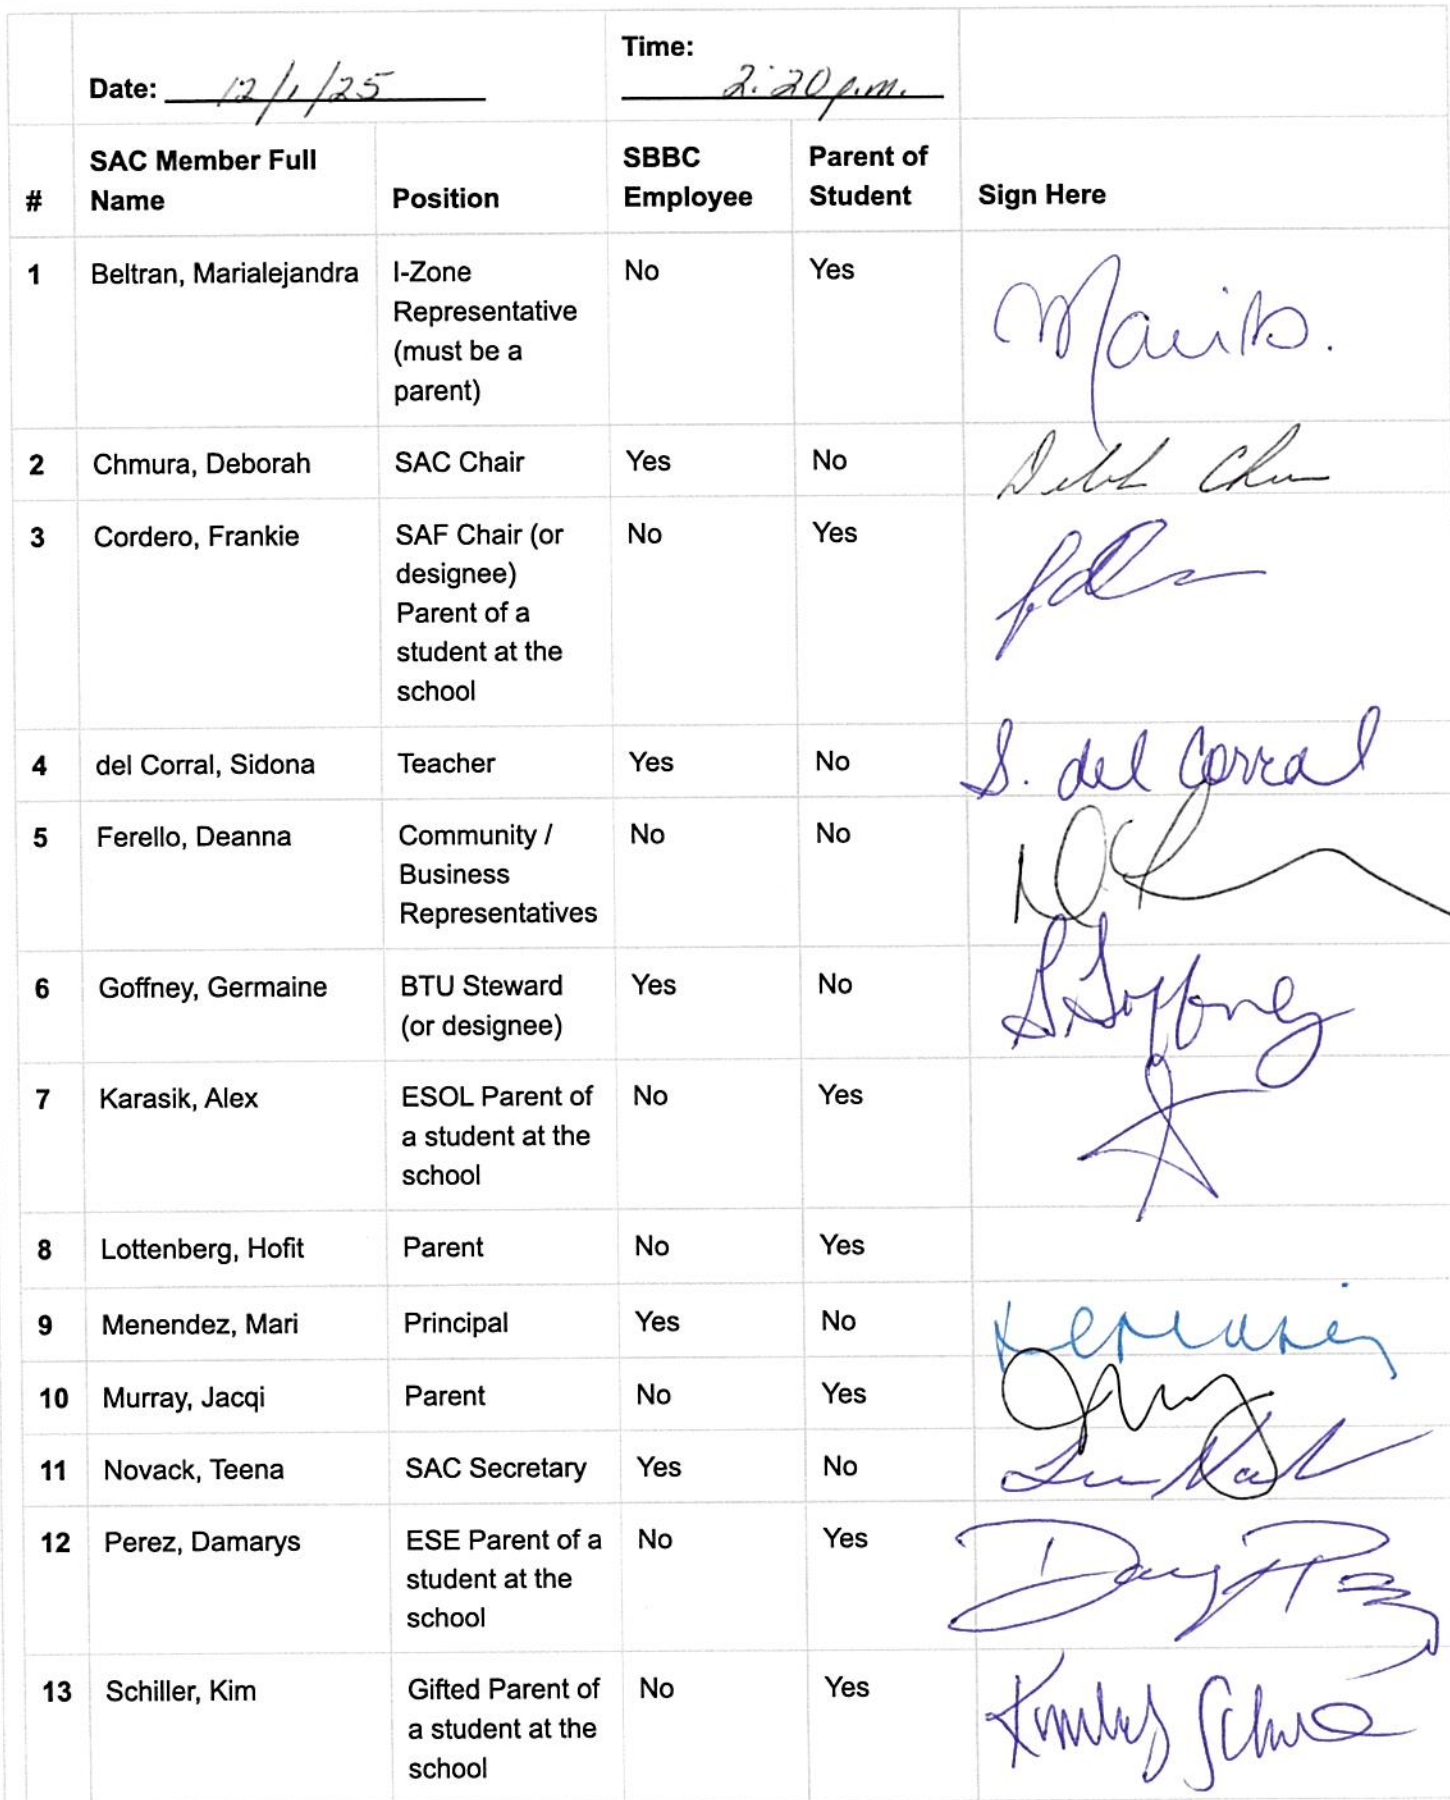 Date: 12/1/25 Time: 2:20 p.m.
# SAC Member Full Name Position SBBC Employee Parent of Student Sign Here
1 Beltran, Marialejandra I-Zone Representative (must be a parent) No Yes
2 Chmura, Deborah SAC Chair Yes No
3 Cordero, Frankie SAF Chair (or designee) Parent of a student at the school No Yes
4 del Corral, Sidona Teacher Yes No S. del Corral
5 Ferello, Deanna Community / Business Representatives No No
6 Goffney, Germaine BTU Steward (or designee) Yes No
7 Karasik, Alex ESOL Parent of a student at the school No Yes
8 Lottenberg, Hofit Parent No Yes
9 Menendez, Mari Principal Yes No
10 Murray, Jacqi Parent No Yes
11 Novack, Teena SAC Secretary Yes No
12 Perez, Damarys ESE Parent of a student at the school No Yes
13 Schiller, Kim Gifted Parent of a student at the school No Yes